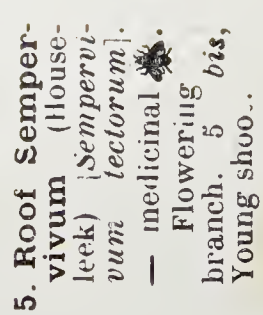 5. Roof Semper-
vivum (House-
leek) [Sempervi-
vum tectorum].
— medicinal.
Flowering
branch. 5 bis,
Young